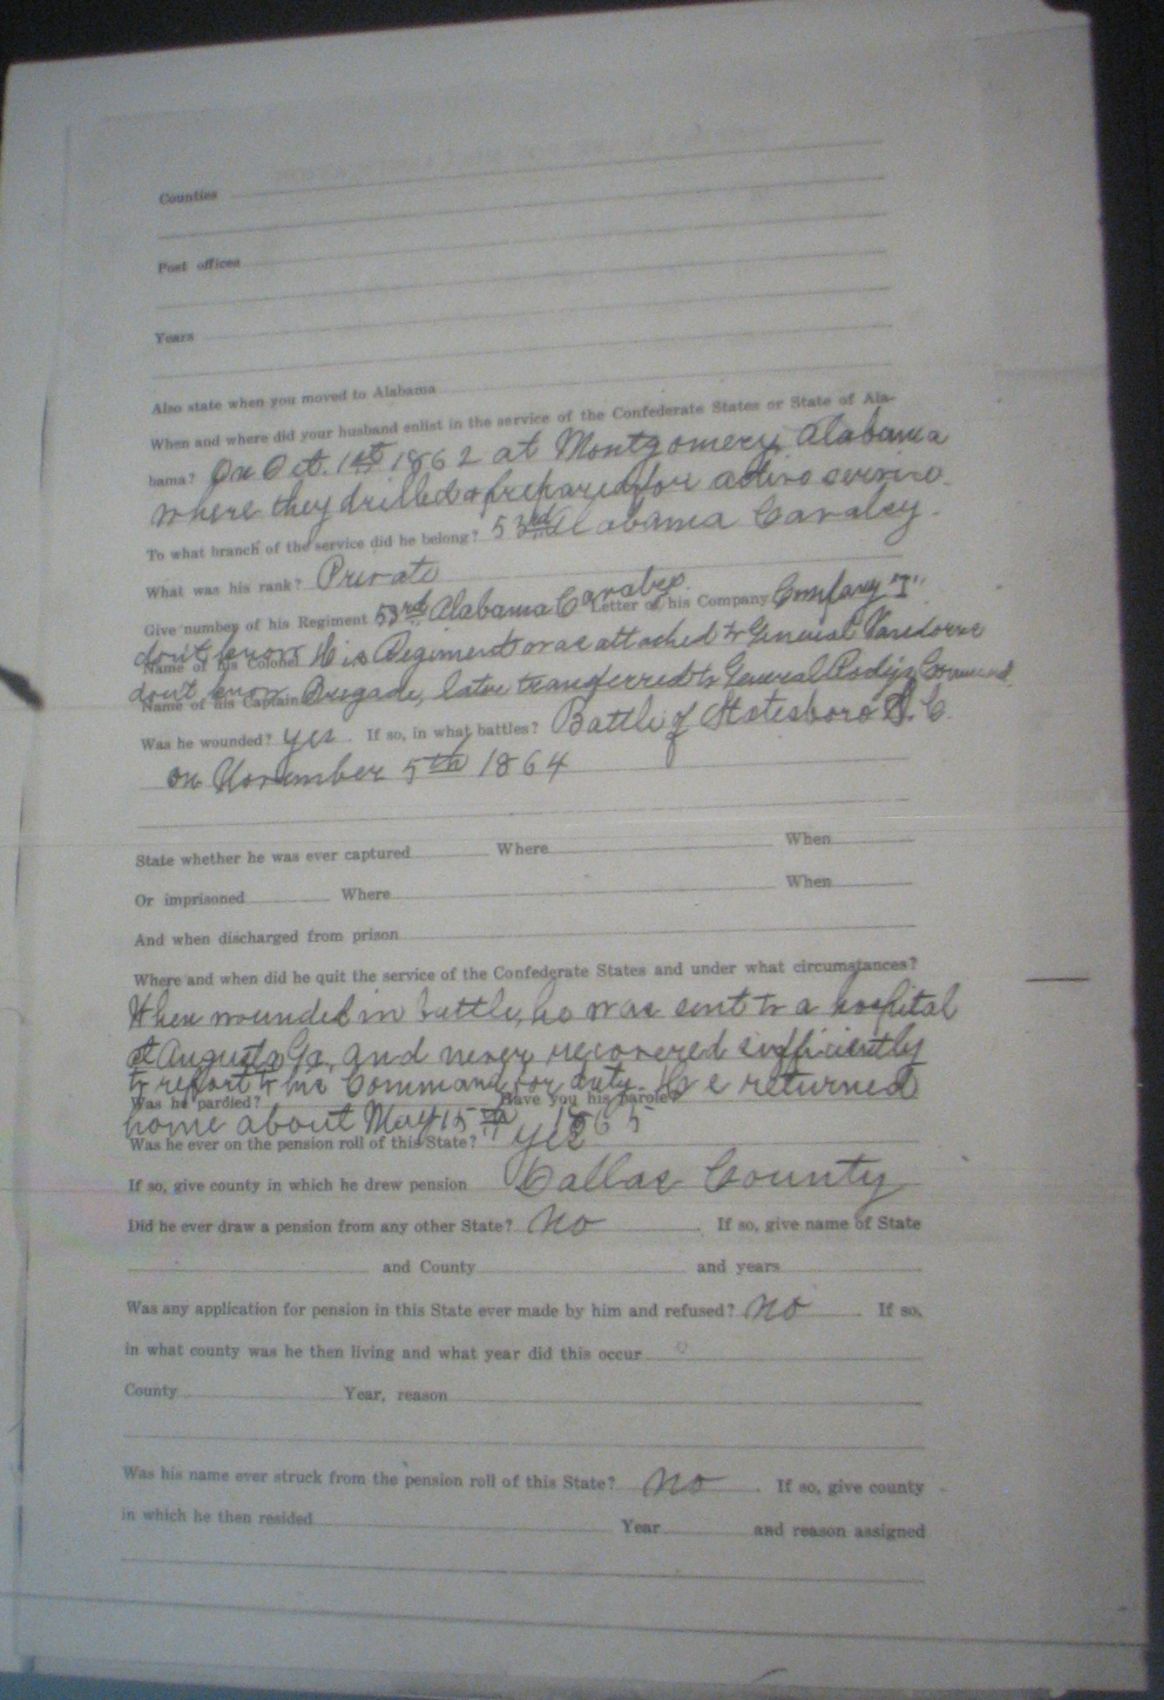 Counties
Post offices
Years
Also state when you moved to Alabama
When and where did your husband enlist in the service of the Confederate States or State of Ala-
bama? On Oct. 1st 1862 at Montgomery, Alabama
where they drilled & prepared for active service.
To what branch of the service did he belong? 53rd Alabama Cavalry.
What was his rank? Private
Give number of his Regiment 53rd Alabama Cavalry. Letter of his Company Company "I"
don't know
Name of his Colonel His Regiment was attached to General
don't know
Name of his Captain Brigade, later transferred to General Command.
Was he wounded? yes. If so, in what battles? Battle of Statesboro S. C.
on November 5th 1864
State whether he was ever captured Where When
Or imprisoned Where When
And when discharged from prison
Where and when did he quit the service of the Confederate States and under what circumstances?
When wounded in battle, he was sent to a hospital
at Augusta Ga, and never recovered sufficiently
to report to his Command for duty. He returned
Was he paroled? Have you his parole?
home about May 15th 1865
Was he ever on the pension roll of this State? yes
If so, give county in which he drew pension Dallas County
Did he ever draw a pension from any other State? No. If so, give name of State
and County and years
Was any application for pension in this State ever made by him and refused? no. If so,
in what county was he then living and what year did this occur
County Year, reason
Was his name ever struck from the pension roll of this State? no. If so, give county
in which he then resided Year and reason assigned